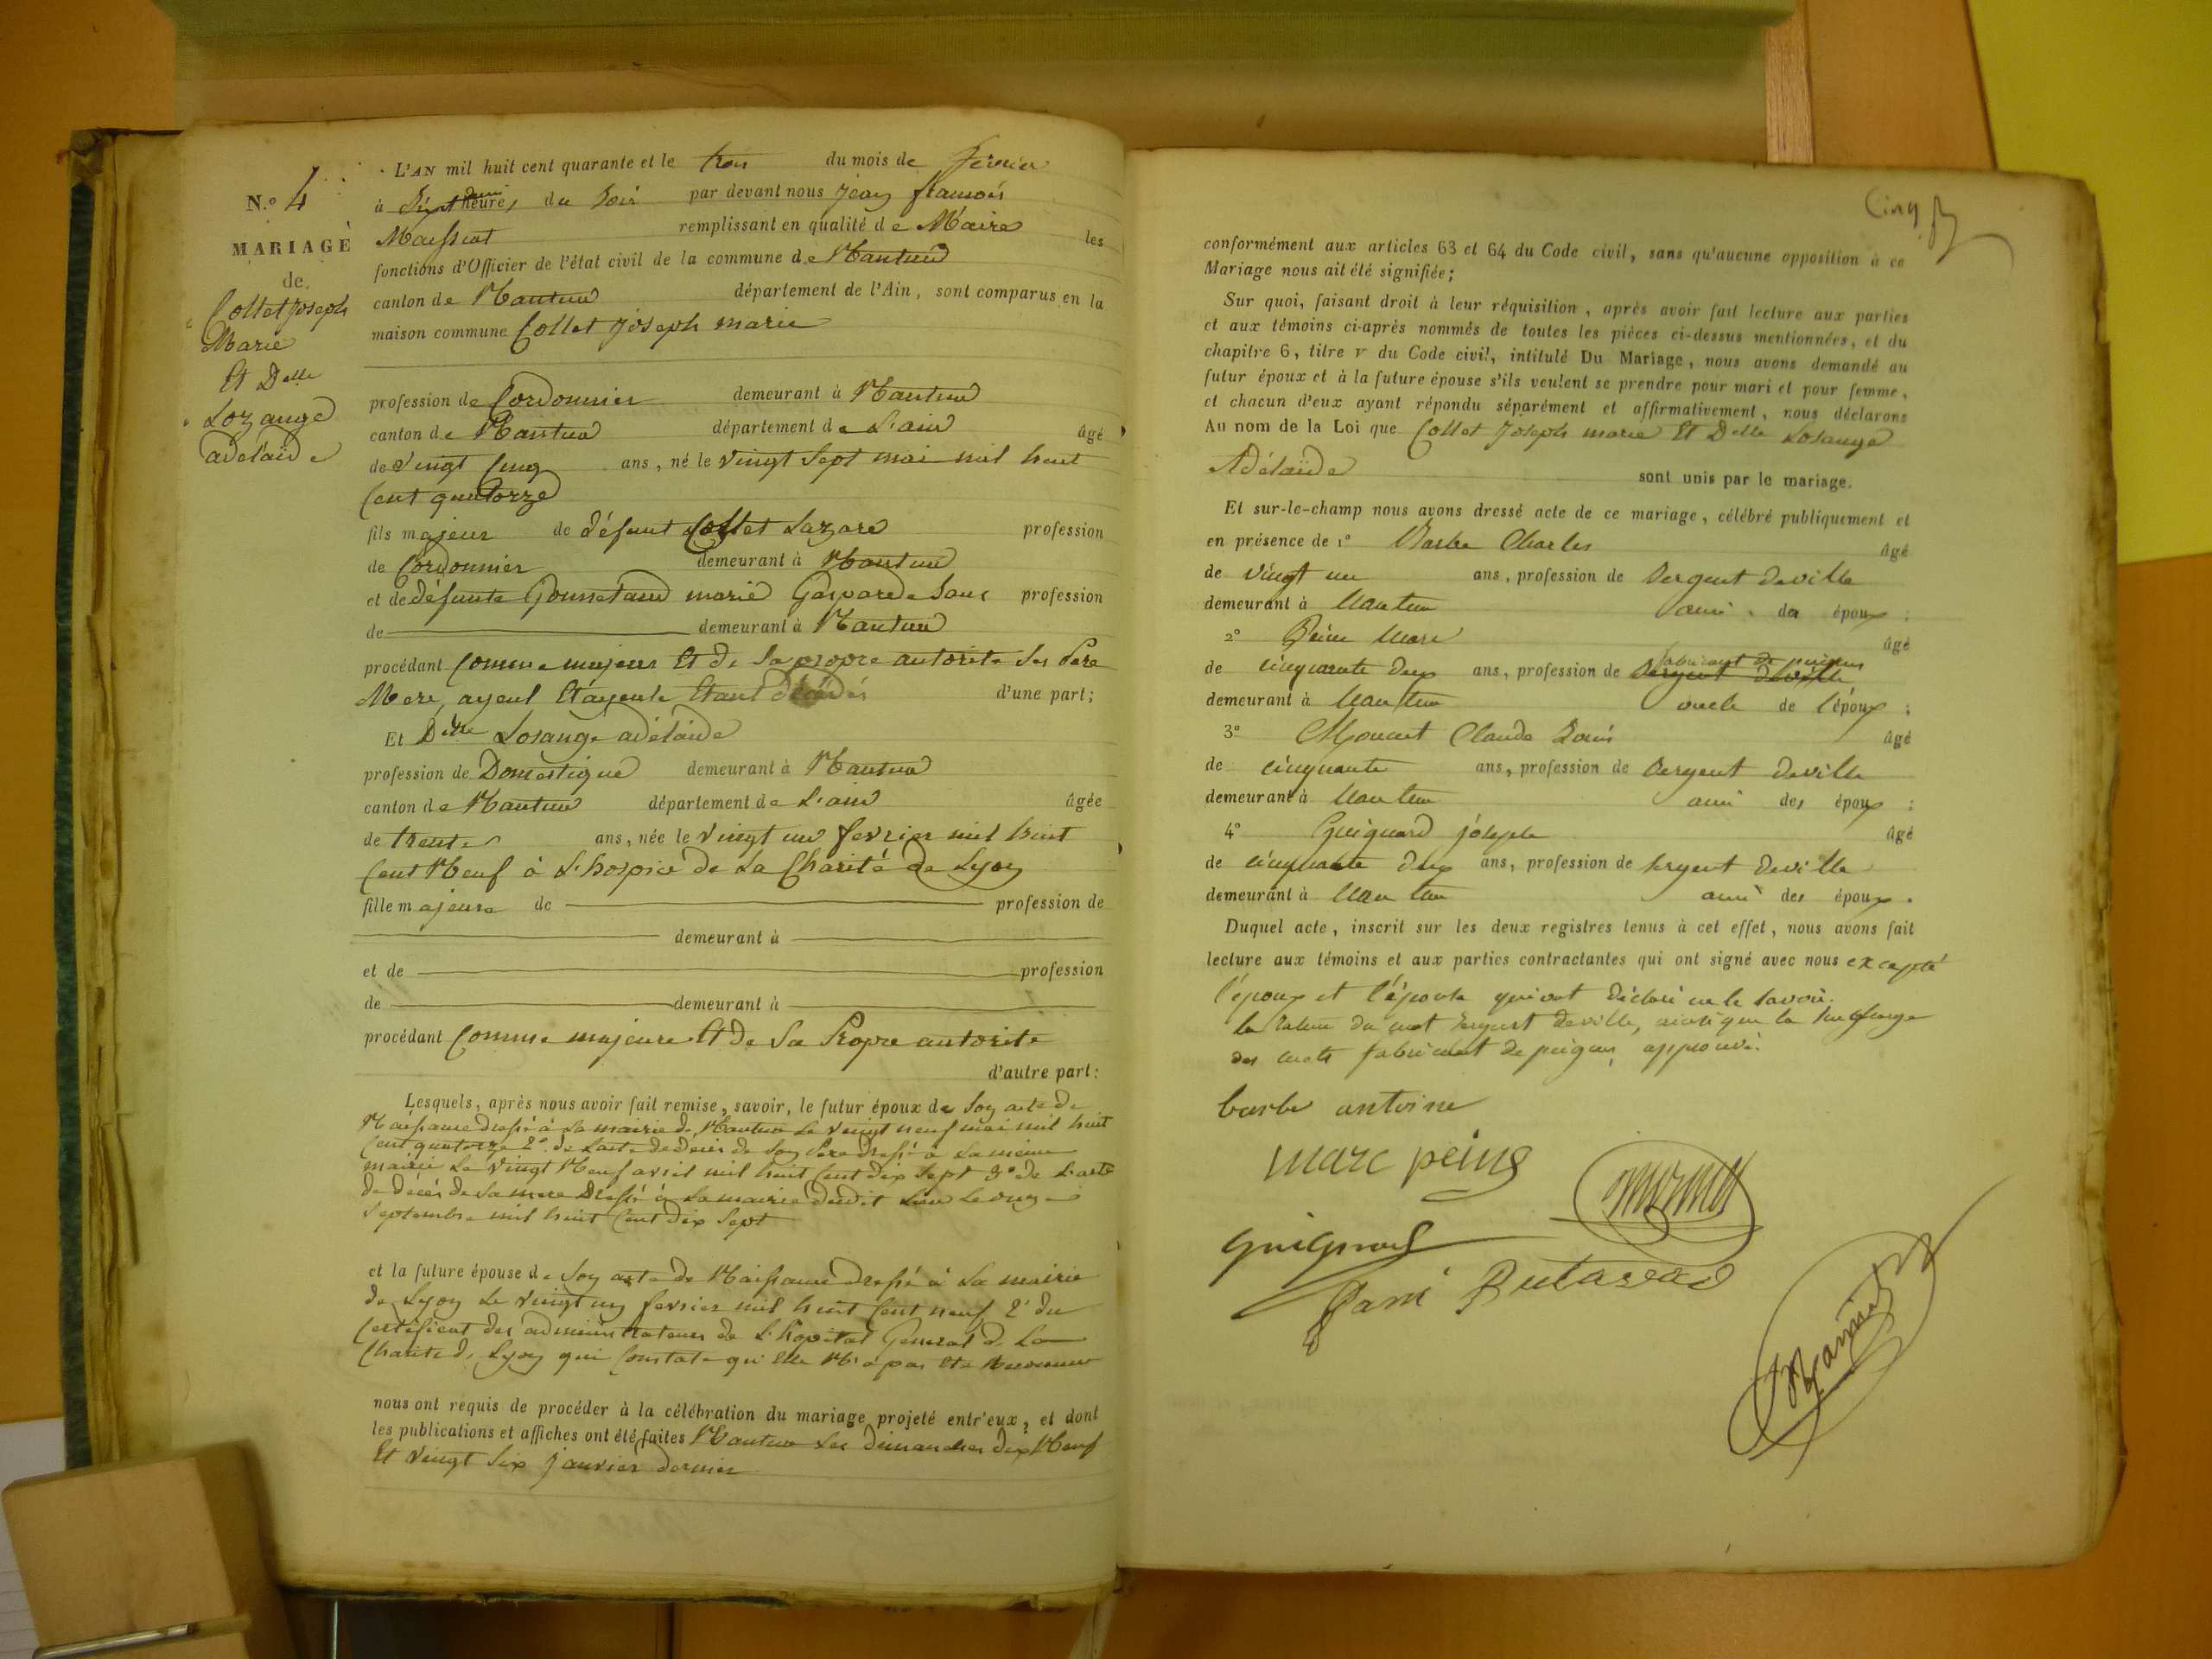 N.o 4
MARIAGE
de
Collet Joseph
Marie
Et Delle
Lozange
adélaïde
L'AN mil huit cent quarante et le trois du mois de fevrier
à Sept heures du Soir par devant nous Jean françois
remplissant en qualité de Maire les
fonctions d'Officier de l'état civil de la commune de Nantua
canton de Nantua département de l'Ain, sont comparus en la
maison commune Collet Joseph marie
profession de Cordonnier demeurant à Nantua
canton de Nantua département de L'ain âgé
de Vingt Cinq ans, né le Vingt Sept mai mil huit
Cent quatorze
fils majeur de défunt Collet Lazare profession
de Cordonnier demeurant à Nantua
et de défunte marie Gasparde Sans profession
de demeurant à Nantua
procédant Comme majeur Et de Sa propre autorité Ses Père
Mere, ayeul Et ayeule Etant décédés d'une part;
Et Delle Losange adélaïde
profession de Domestique demeurant à Nantua
canton de Nantua département de L'ain âgée
de trente ans, née le Vingt un fevrier mil huit
Cent Neuf à L'hospice de La Charité de Lyon
fille majeure de profession de
demeurant à
et de profession
de demeurant à
procédant Comme majeure Et de Sa Propre autorité
d'autre part:
Lesquels, après nous avoir fait remise, savoir, le futur époux de Son acte de
Naissance dressé à la mairie de Nantua Le Vingt neuf mai mil huit
Cent quatorze 2o de Lacte de décès de Son Père dressé à La même
mairie Le Vingt Neuf avril mil huit Cent dix Sept 3o de L'acte
de décès de Sa mere Dressé à La mairie dudit Lieu Le onze
Septembre mil huit Cent dix Sept
et la future épouse de Son acte de Naissance dressé à La mairie
de Lyon Le Vingt un fevrier mil huit Cent neuf 2o du
Certificat des administrateurs de L'hopital General de La
Charité de Lyon qui Constate qu'Elle N'a pas Eté Reconnue
nous ont requis de procéder à la célébration du mariage projeté entr'eux, et dont
les publications et affiches ont été faites Nantua Les dimanches dix Neuf
Et Vingt Six Janvier dernier
Cinq
conformément aux articles 63 et 64 du Code civil, sans qu'aucune opposition à ce
Mariage nous ait été signifiée;
Sur quoi, faisant droit à leur réquisition, après avoir fait lecture aux parties
et aux témoins ci-après nommés de toutes les pièces ci-dessus mentionnées, et du
chapitre 6, titre v du Code civil, intitulé Du Mariage, nous avons demandé au
futur époux et à la future épouse s'ils veulent se prendre pour mari et pour femme,
et chacun d'eux ayant répondu séparément et affirmativement, nous déclarons
Au nom de la Loi que Collet Joseph marie Et Delle Losange
Adélaïde sont unis par le mariage.
Et sur-le-champ nous avons dressé acte de ce mariage, célébré publiquement et
en présence de 1o Barbe Charles âgé
de vingt un ans, profession de Sergent deville
demeurant à Nantua ami des époux;
2o Peine Marc âgé
fabricant de peignes
de cinquante deux ans, profession de Sergent deville
demeurant à Nantua oncle de l'époux;
3o Claude Louis âgé
de cinquante ans, profession de Sergent deville
demeurant à Nantua ami des époux;
4o Guignard joseph âgé
de cinquante deux ans, profession de sergent deville
demeurant à Nantua ami des époux.
Duquel acte, inscrit sur les deux registres tenus à cet effet, nous avons fait
lecture aux témoins et aux parties contractantes qui ont signé avec nous excepté
l'époux et l'épouse qui ont déclaré ne le savoir.
la rature du mot sergent deville, ainsi que la surcharge
des mots fabricant de peignes, approuvé.
barbe antoine
marc peine
guignard